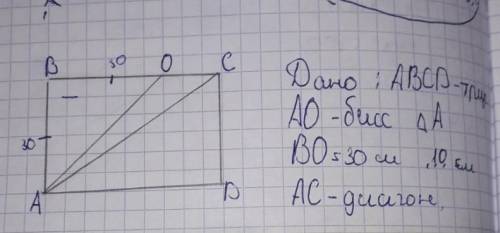 B 30 O C
30
A D
Дано : ABCD-
АО-бисс ΔА
BO=30 см 10 см
АС-диагон.